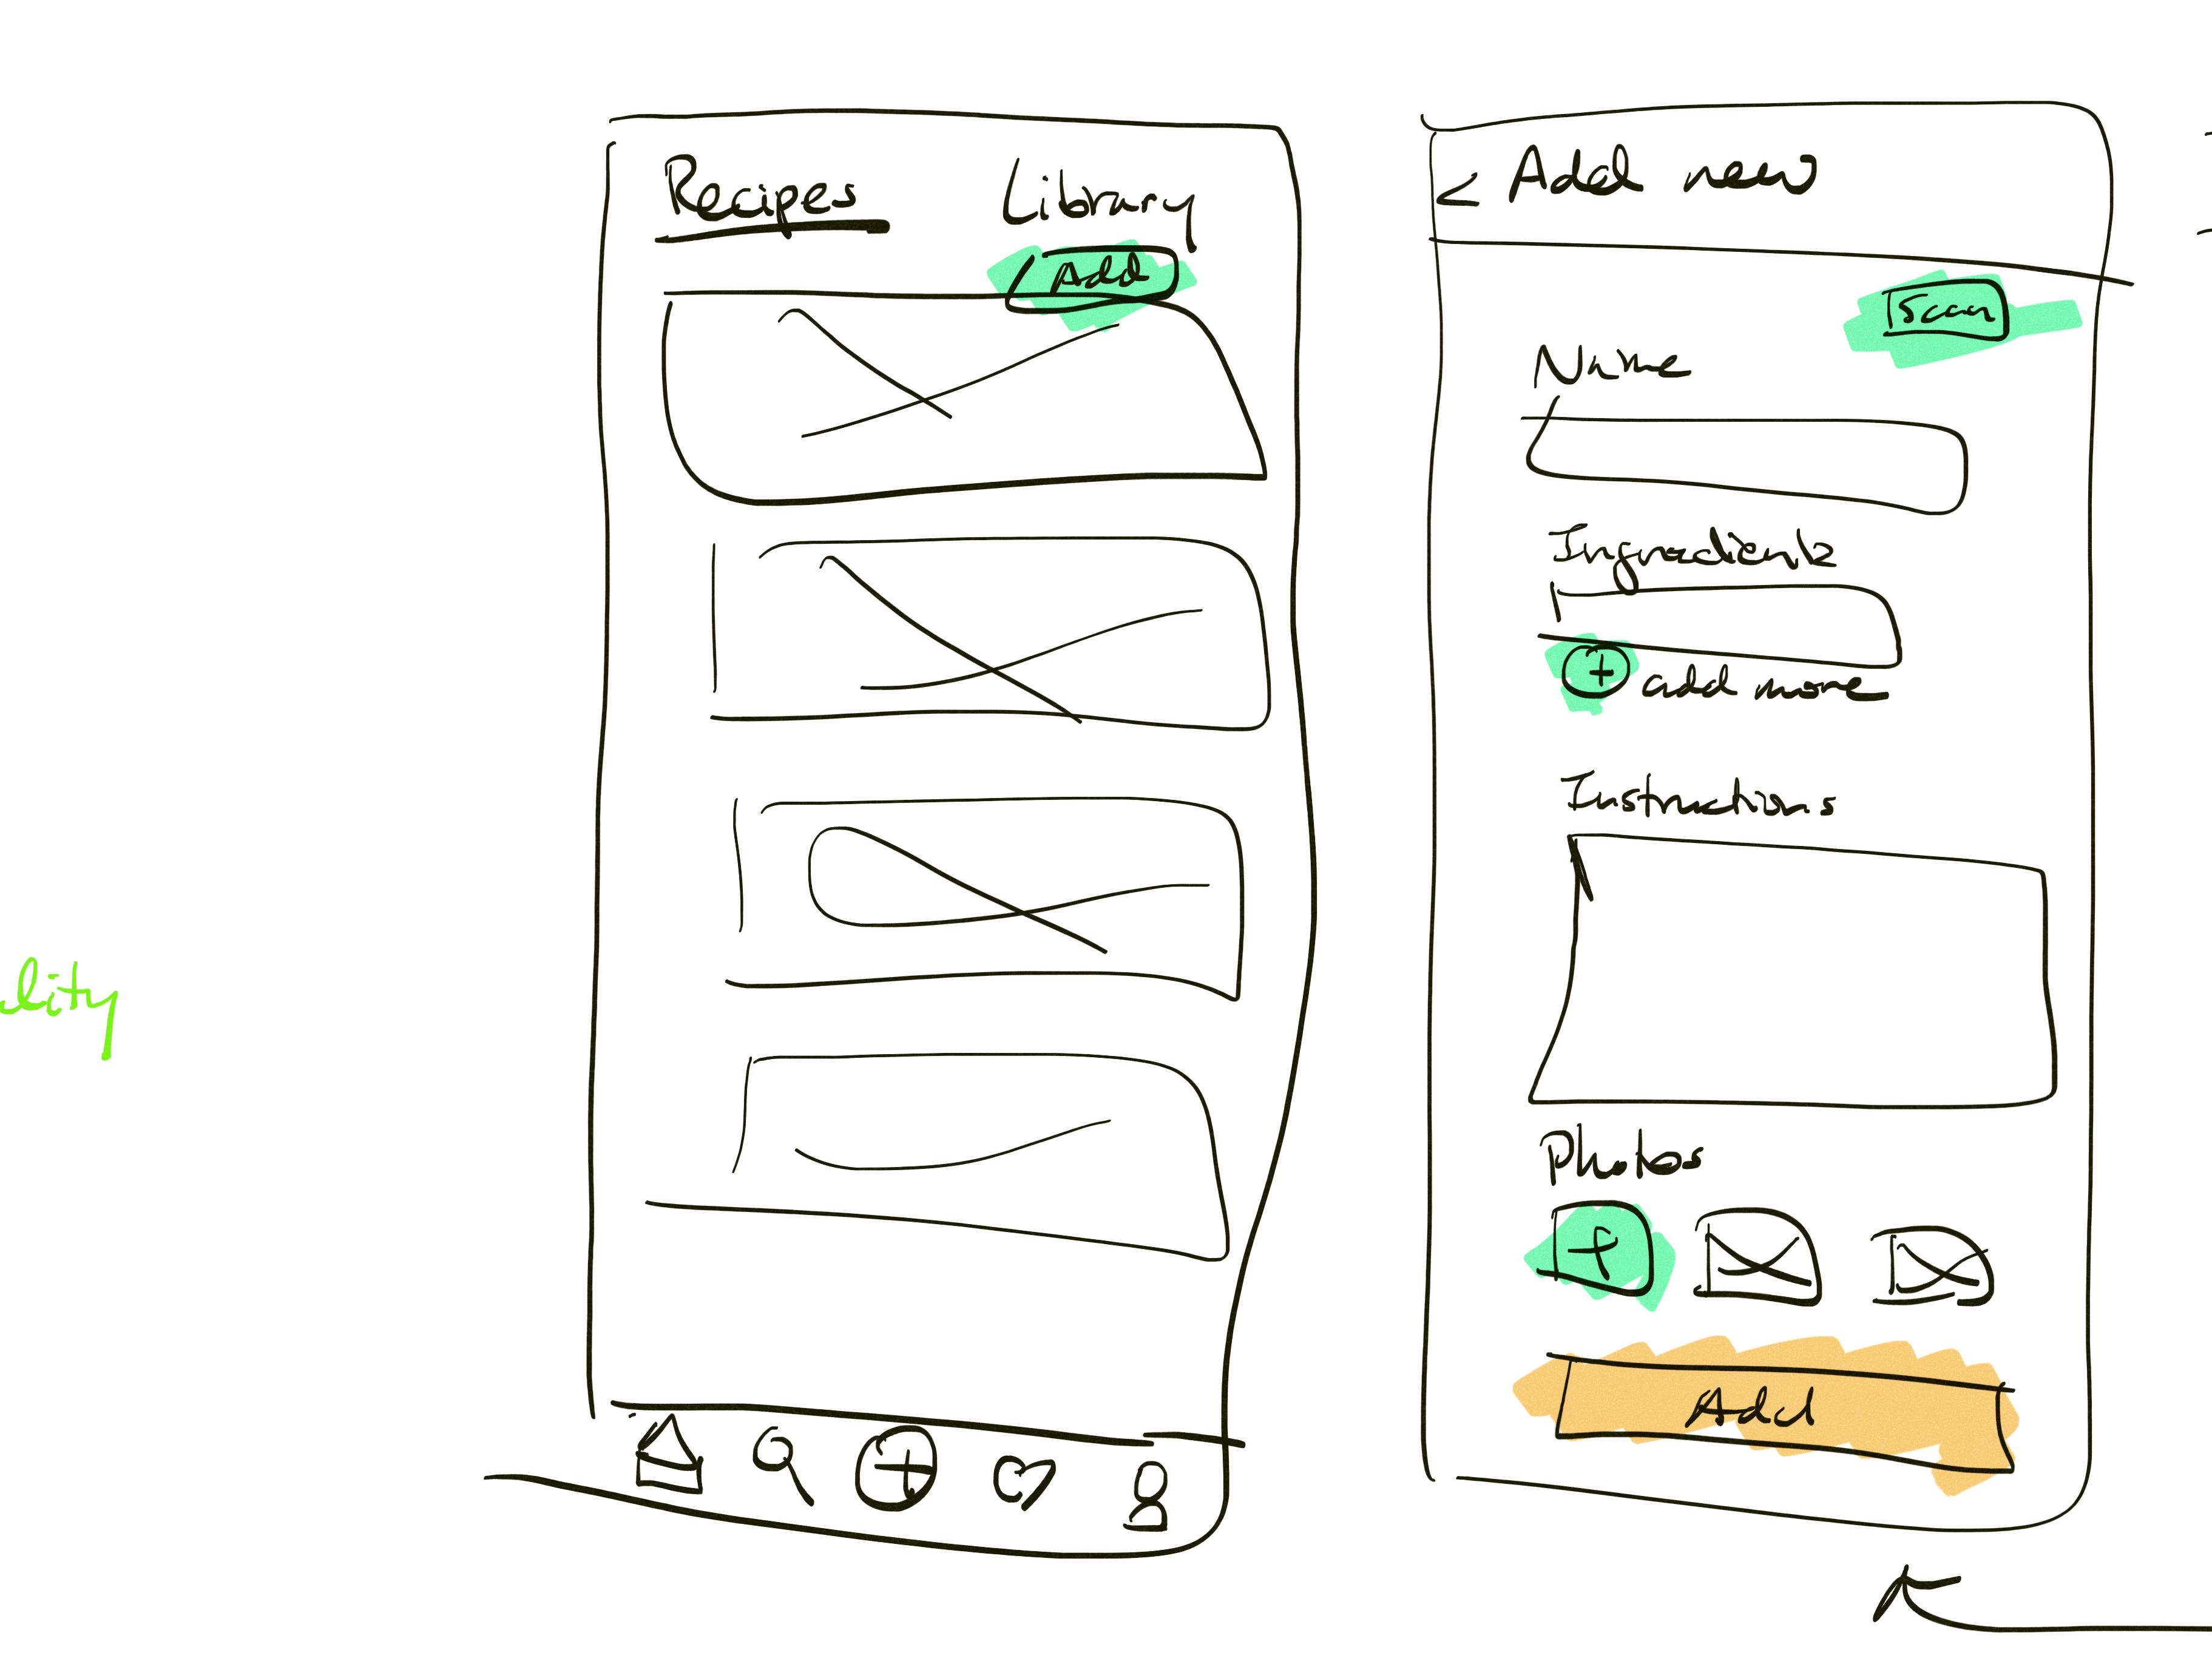 Recipes Library
Add
< Add new
Scan
Name
Ingredients
+ add more
Instructions
Photos
+
Add
+
lity